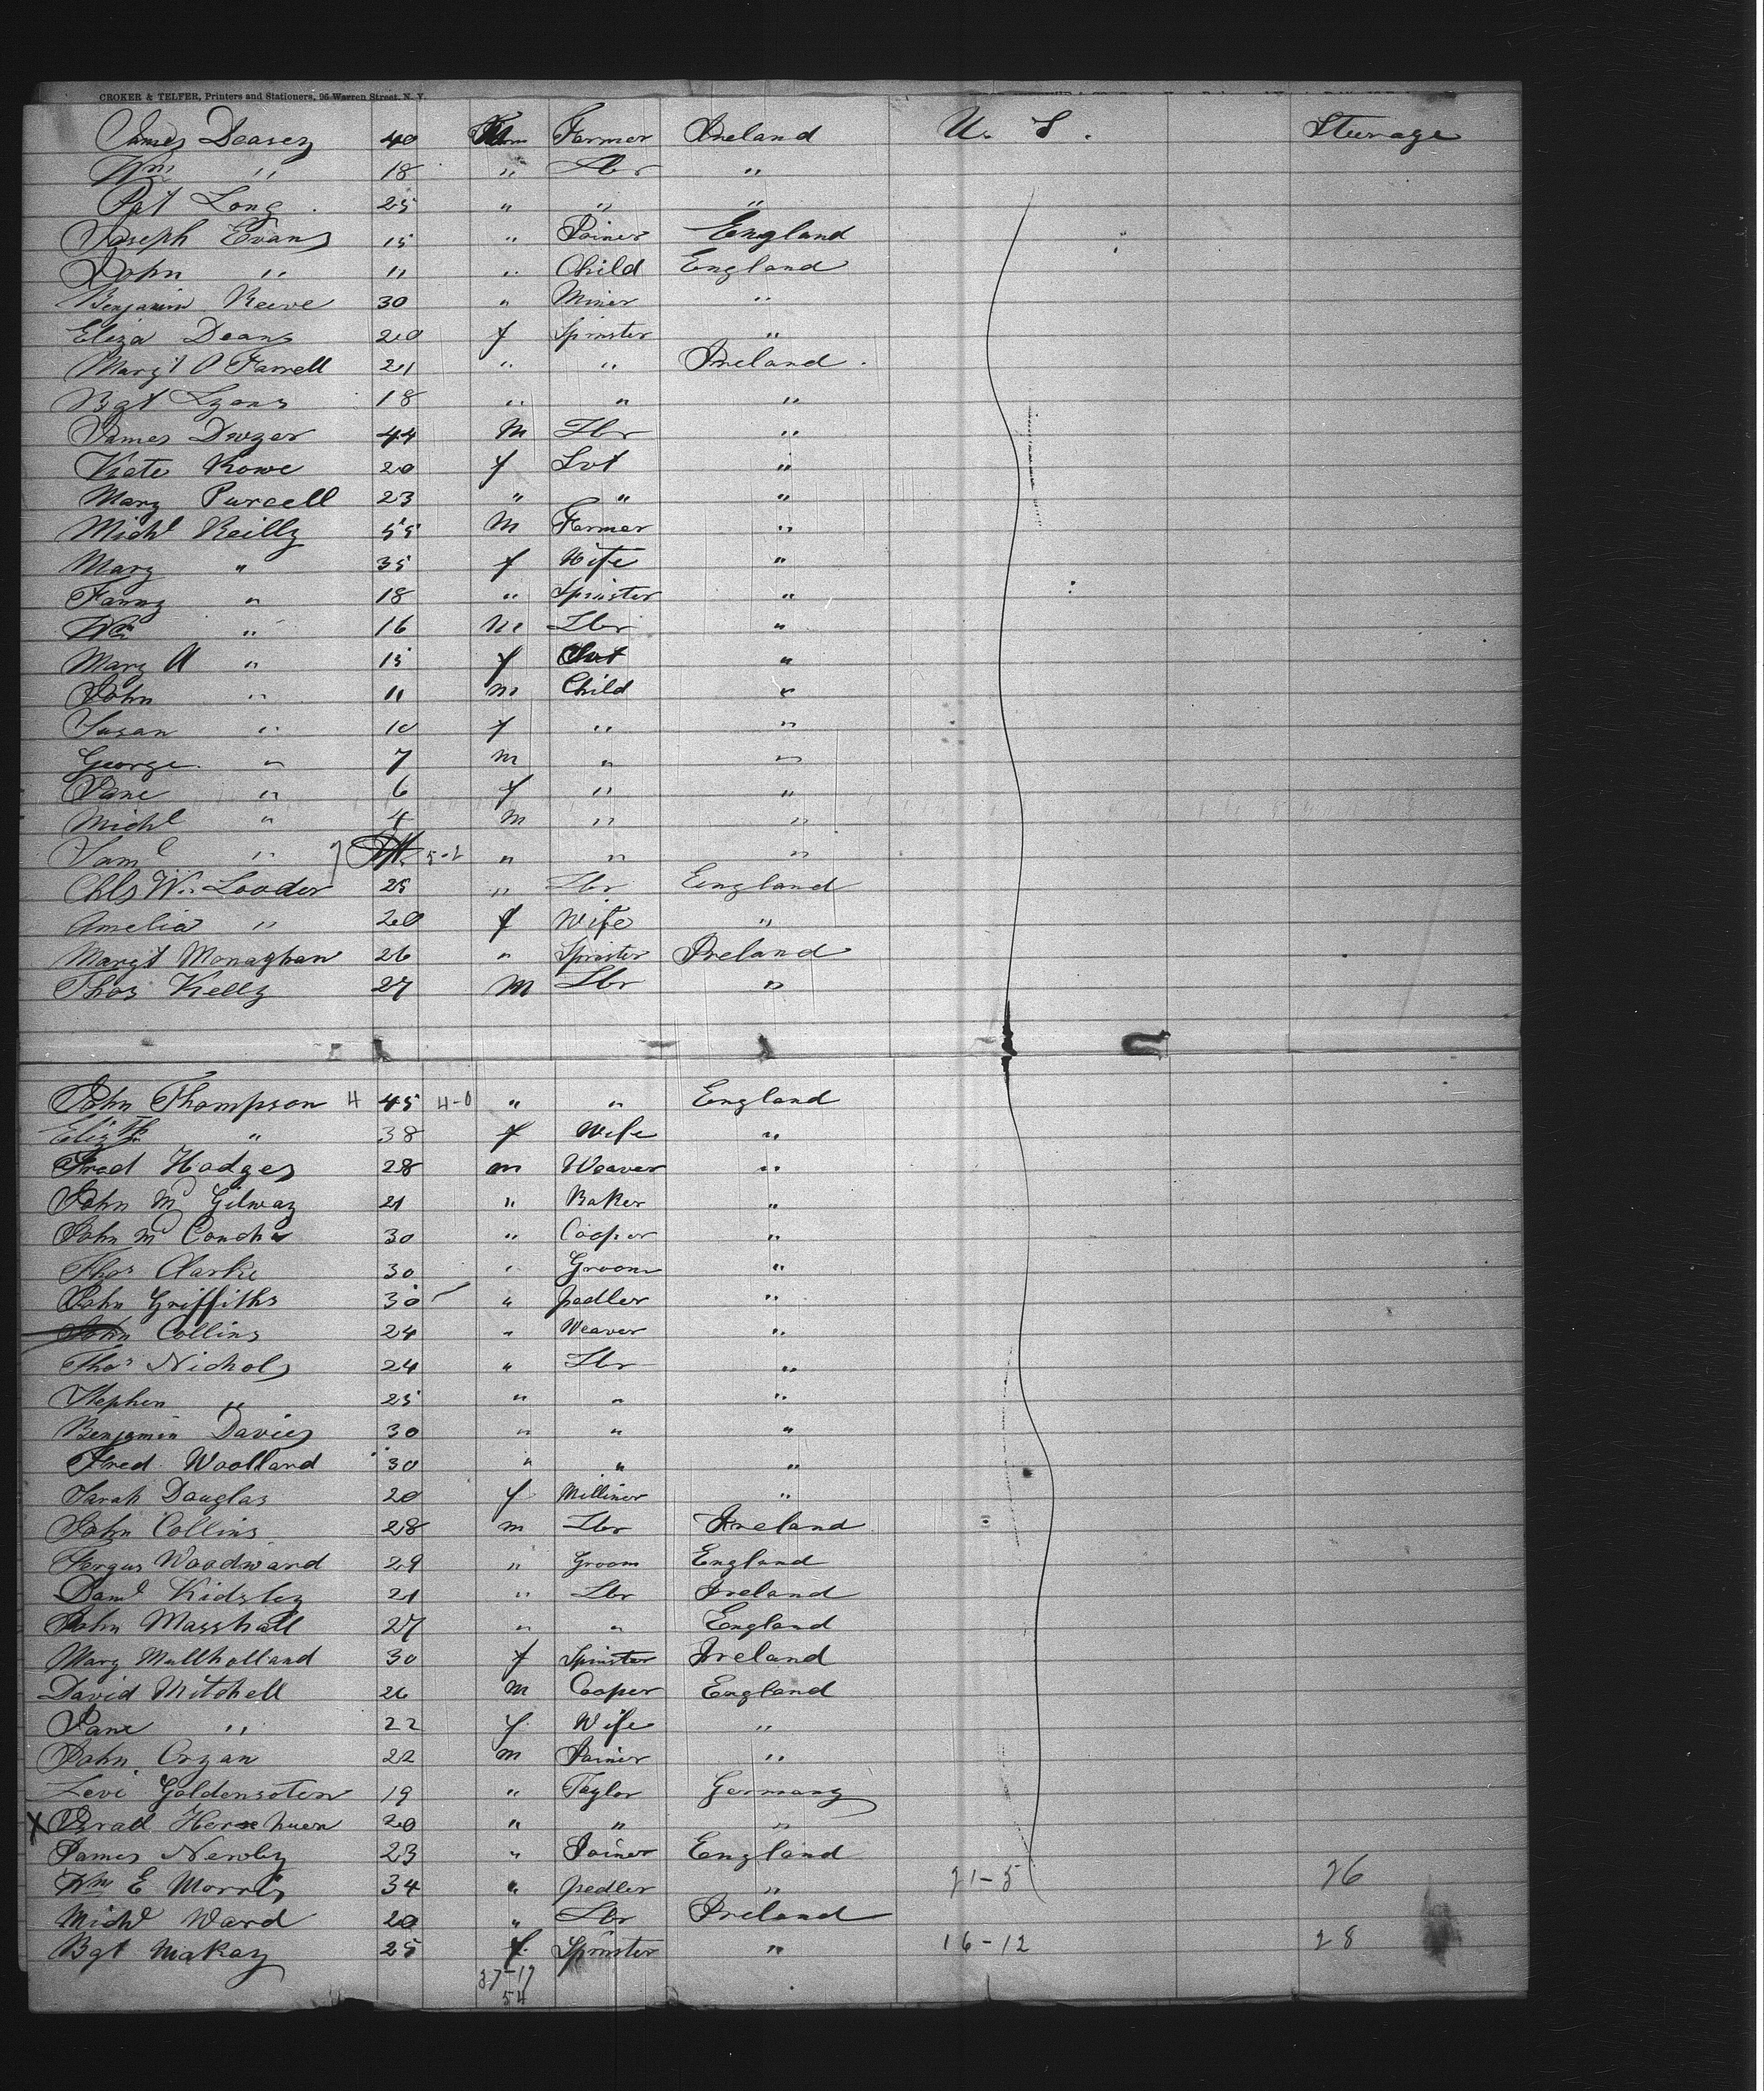 CROKER & TELFER, Printers and Stationers, 96 Warren Street, N. Y.
James Deasey 40 Farmer Ireland U. S. Steerage
Wm " 18 " Lbr "
Pat Long 25 " " "
Joseph Evans 15 " Joiner England
John " 11 " Child England
Benjamin Reeve 30 " Miner "
Eliza Deans 20 f Spinster "
Margt O Farrell 21 " " Ireland
Bgt Lyons 18 " " "
James Dwyer 44 M Lbr "
Kate Rowe 20 f Svt "
Mary Purcell 23 " " "
Michl Reilly 55 M Farmer "
Mary " 35 f Wife "
Fanny " 18 " Spinster "
Wm " 16 m Lbr "
Mary A " 15 f Svt "
John " 11 m Child "
Susan " 10 f " "
George " 7 m " "
Jane " 6 f " "
Michl " 4 m " "
Saml " 5-2 " " "
Chls W. Loader 25 " Lbr England
Amelia " 20 f Wife "
Margt Monaghan 26 " Spinster Ireland
Thos Kelly 27 M Lbr "
John Thompson 4 45 4-0 " " England
Elizth " 38 f Wife "
Fred Hodges 28 m Weaver "
John Mc Gilway 21 " Baker "
John Mc 30 " Cooper "
Thos Clarke 30 " Groom "
John Griffiths 30 " pedler "
John Collins 24 " Weaver "
Thos Nichols 24 " Lbr "
Stephen " 25 " " "
Benjamin Davies 30 " " "
Fred Woolland 30 " " "
Sarah Douglas 20 f Milliner "
John Collins 28 m Lbr Ireland
Fergus Woodward 29 " Groom England
Daml Kidsley 21 " Lbr Ireland
John Masshall 27 " " England
Mary Mullholland 30 f Spinster Ireland
David Mitchell 26 M Cooper England
Jane " 22 f Wife "
John Cryan 22 m Joiner "
Levi Goldensoten 19 " Taylor Germany
X 20 " " "
James Newby 23 " Joiner England
Wm E Morris 34 " pedler " 21-5 26
Michl Ward 20 " Lbr Ireland
Bgt McKay 25 f Spinster " 16-12 28
37-17
54